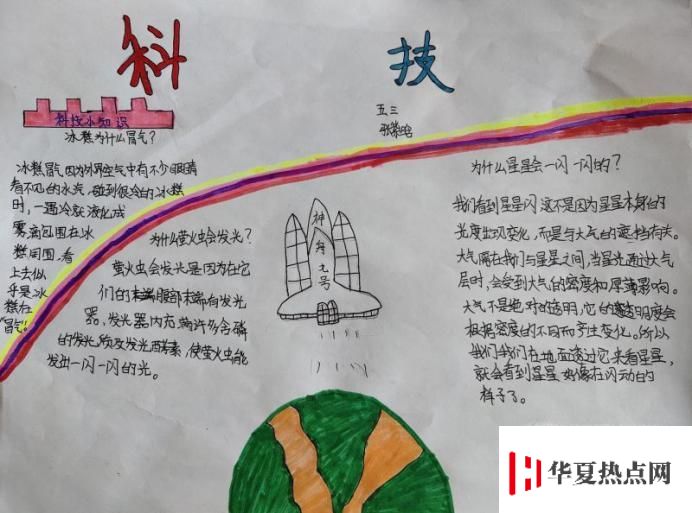 科技
五三
科技小知识
冰糕为什么冒气?
冰糕冒气因为外界空气中有不少眼睛
看不见的水汽,碰到很冷的冰糕
时,一遇冷就液化成
雾滴包围在冰
糕周围,看
上去似
乎是冰
糕在
"冒气"。
为什么萤火虫会发光?
萤火虫会发光是因为在它
们的腹部末端有发光
器,发光器内充满许多含磷
的发光质及发光酵素,使萤火虫能
发出一闪一闪的光。
神舟九号
为什么星星会一闪一闪的?
我们看到星星闪,这不是因为星星本身的
光度出现变化,而是与大气的遮挡有关。
大气隔在我们与星星之间,当星光通过大气
层时,会受到大气的密度和厚薄影响。
大气不是绝对的透明,它的透明度会
根据密度的不同而产生变化。所以
我们我们在地面透过它来看星星,
就会看到星星好像在闪动的
样子了。
华夏热点网